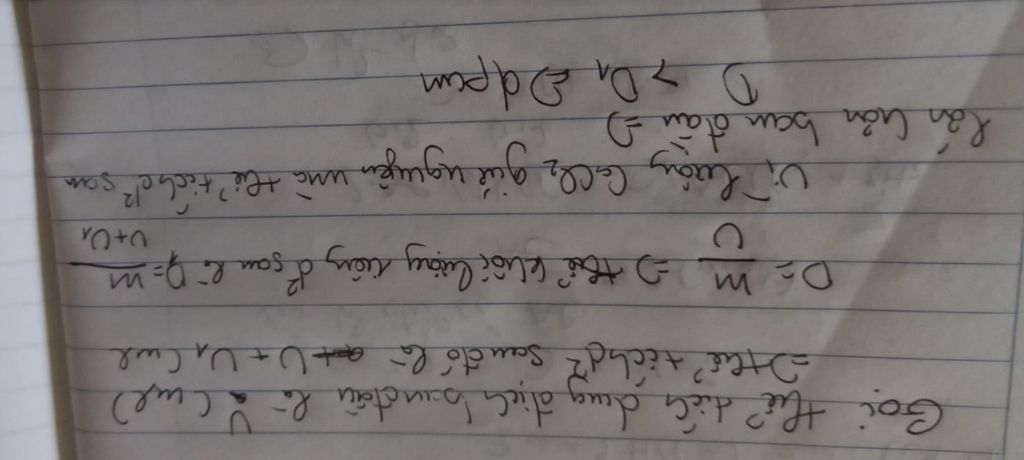 Gọi thể tích dung dịch ban đầu là V (ml)
=> thể tích d² sau đó là V + V₁ (ml
D = m/V => khối lượng riêng d² sau là D₁ = m/V+V₁
Vì lượng CaCl₂ giữ nguyên mà thể tích d² sau
lớn hơn ban đầu =>
D > D₁ => đpcm